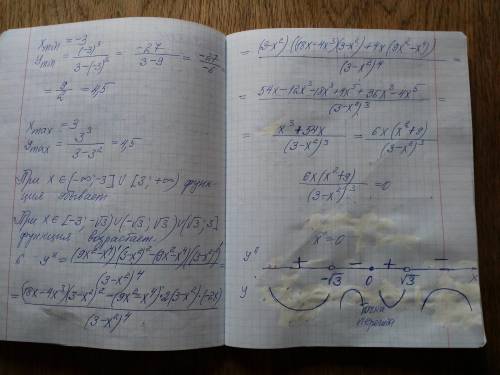 Xmin = -3
Ymin = (-3)³ / 3-(-3)² = -27 / 3-9 = -27 / -6
= 9/2 = 4,5
Xmax = 3
Ymax = 3³ / 3-3² = 4,5
При X ∈ (-∞; -3] ∪ [3; +∞) функ-
ция убывает
При X ∈ [-3; -√3) ∪ (-√3; √3) ∪ (√3; 3]
функция возрастает.
6 y'' = (9x²-x⁴)'(3-x²)²-(9x²-x⁴)((3-x²)²)' / (3-x²)⁴
= (18x-4x³)(3-x²)²-(9x²-x⁴)·2(3-x²)·(-2x) / (3-x²)⁴
= (3-x²)((18x-4x³)(3-x²)+4x(9x²-x⁴)) / (3-x²)⁴ =
= 54x-12x³-18x³+4x⁵+36x³-4x⁵ / (3-x²)³ =
= x³+54x / (3-x²)³ = 6x(x²+9) / (3-x²)³
6x(x²+9) / (3-x²)³ = 0
x=0
y'' + - + -
-√3 0 √3 x
y
Точка
перегиб